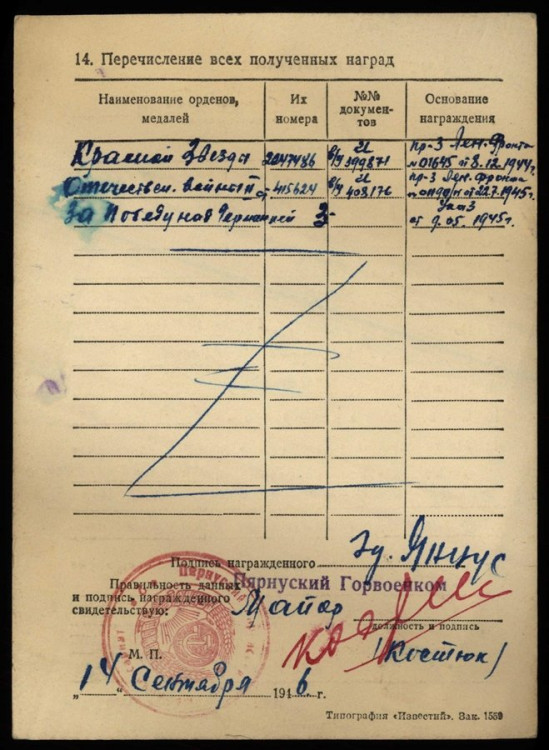 14. Перечисление всех полученных наград
Наименование орденов, медалей
Их номера
№№ документов
Основание награждения
Красной Звезды 2047486 б/у И 399871 пр-з Лен. Фронта № 01645 от 8.12.1944г.
Отечествен. Войны II ст. 415624 б/у И 408176 пр-з Лен. Фронта от 22.7.1945г.
За Победу над Германией З- Указ от 9.05.1945г.
Подпись награжденного
Правильность данных
и подпись награжденного
свидетельствую:
Пярнуский Горвоенком
Майор
должность и подпись
(Костюк)
М. П.
„14“ Сентября 1946 г.
Типография «Известий». Зак. 1559